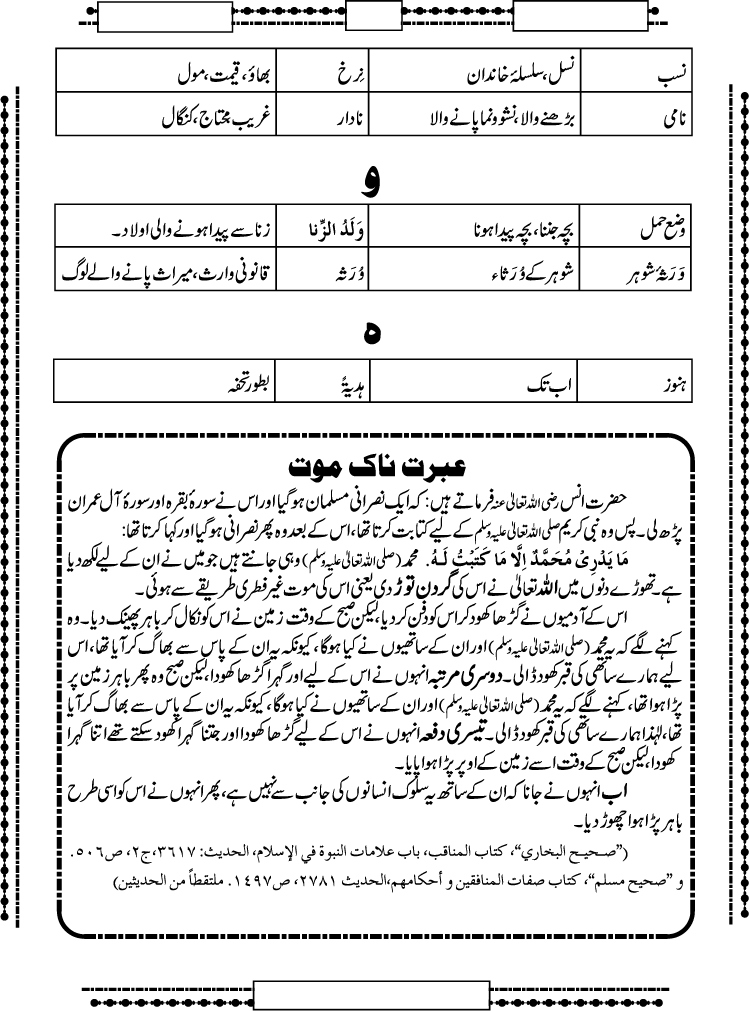 نسب نسل، سلسلۂ خاندان نِرخ بھاؤ، قیمت، مول
نامی بڑھنے والا، نشوونما پانے والا نادار غریب، محتاج، کنگال
و
وضع حمل بچہ جننا، بچہ پیدا ہونا وَلَدُ الزِّنا زنا سے پیدا ہونے والی اولاد۔
وَرَثۂ شوہر شوہر کے وُرَثاء وُرَثہ قانونی وارث، میراث پانے والے لوگ
ہ
ہنوز اب تک ہدیۃً بطور تحفہ
عبرت ناک موت
حضرت انس رضی اللہ تعالیٰ عنہ فرماتے ہیں: کہ ایک نصرانی مسلمان ہو گیا اور اس نے سورۂ بقرہ اور سورۂ آل عمران
پڑھ لی۔ پس وہ نبی کریم صلی اللہ تعالیٰ علیہ وسلم کے لیے کتابت کرتا تھا، اس کے بعد وہ پھر نصرانی ہو گیا اور کہا کرتا تھا:
مَا يَدْرِیْ مُحَمَّدٌ اِلَّا مَا كَتَبْتُ لَـهُ. محمد (صلی اللہ تعالیٰ علیہ وسلم) وہی جانتے ہیں جو میں نے ان کے لیے لکھ دیا
ہے۔ تھوڑے دنوں میں اللہ تعالیٰ نے اس کی گردن توڑ دی یعنی اس کی موت غیر فطری طریقے سے ہوئی۔
اس کے آدمیوں نے گڑھا کھود کر اس کو دفن کر دیا، لیکن صبح کے وقت زمین نے اس کو نکال کر باہر پھینک دیا۔ وہ
کہنے لگے کہ یہ محمد (صلی اللہ تعالیٰ علیہ وسلم) اور ان کے ساتھیوں نے کیا ہوگا، کیونکہ یہ ان کے پاس سے بھاگ کر آیا تھا، اس
لیے ہمارے ساتھی کی قبر کھود ڈالی۔ دوسری مرتبہ انہوں نے اس کے لیے اور گہرا گڑھا کھودا، لیکن صبح وہ پھر باہر زمین پر
پڑا ہوا تھا، کہنے لگے کہ یہ محمد (صلی اللہ تعالیٰ علیہ وسلم) اور ان کے ساتھیوں نے کیا ہوگا، کیونکہ یہ ان کے پاس سے بھاگ کر آیا
تھا، لہٰذا ہمارے ساتھی کی قبر کھود ڈالی۔ تیسری دفعہ انہوں نے اس کے لیے گڑھا کھودا اور جتنا گہرا کھود سکتے تھے اتنا گہرا
کھودا، لیکن صبح کے وقت اسے زمین کے اوپر پڑا ہوا پایا۔
اب انہوں نے جانا کہ ان کے ساتھ یہ سلوک انسانوں کی جانب سے نہیں ہے، پھر انہوں نے اس کو اسی طرح
باہر پڑا ہوا چھوڑ دیا۔
(”صحيح البخاري“، كتاب المناقب، باب علامات النبوة في الإسلام، الحديث: ٣٦١٧، ج٢، ص٥٠٦.
و ”صحيح مسلم“، كتاب صفات المنافقين و أحكامهم،الحديث ٢٧٨١، ص١٤٩٧. ملتقطاً من الحديثين)